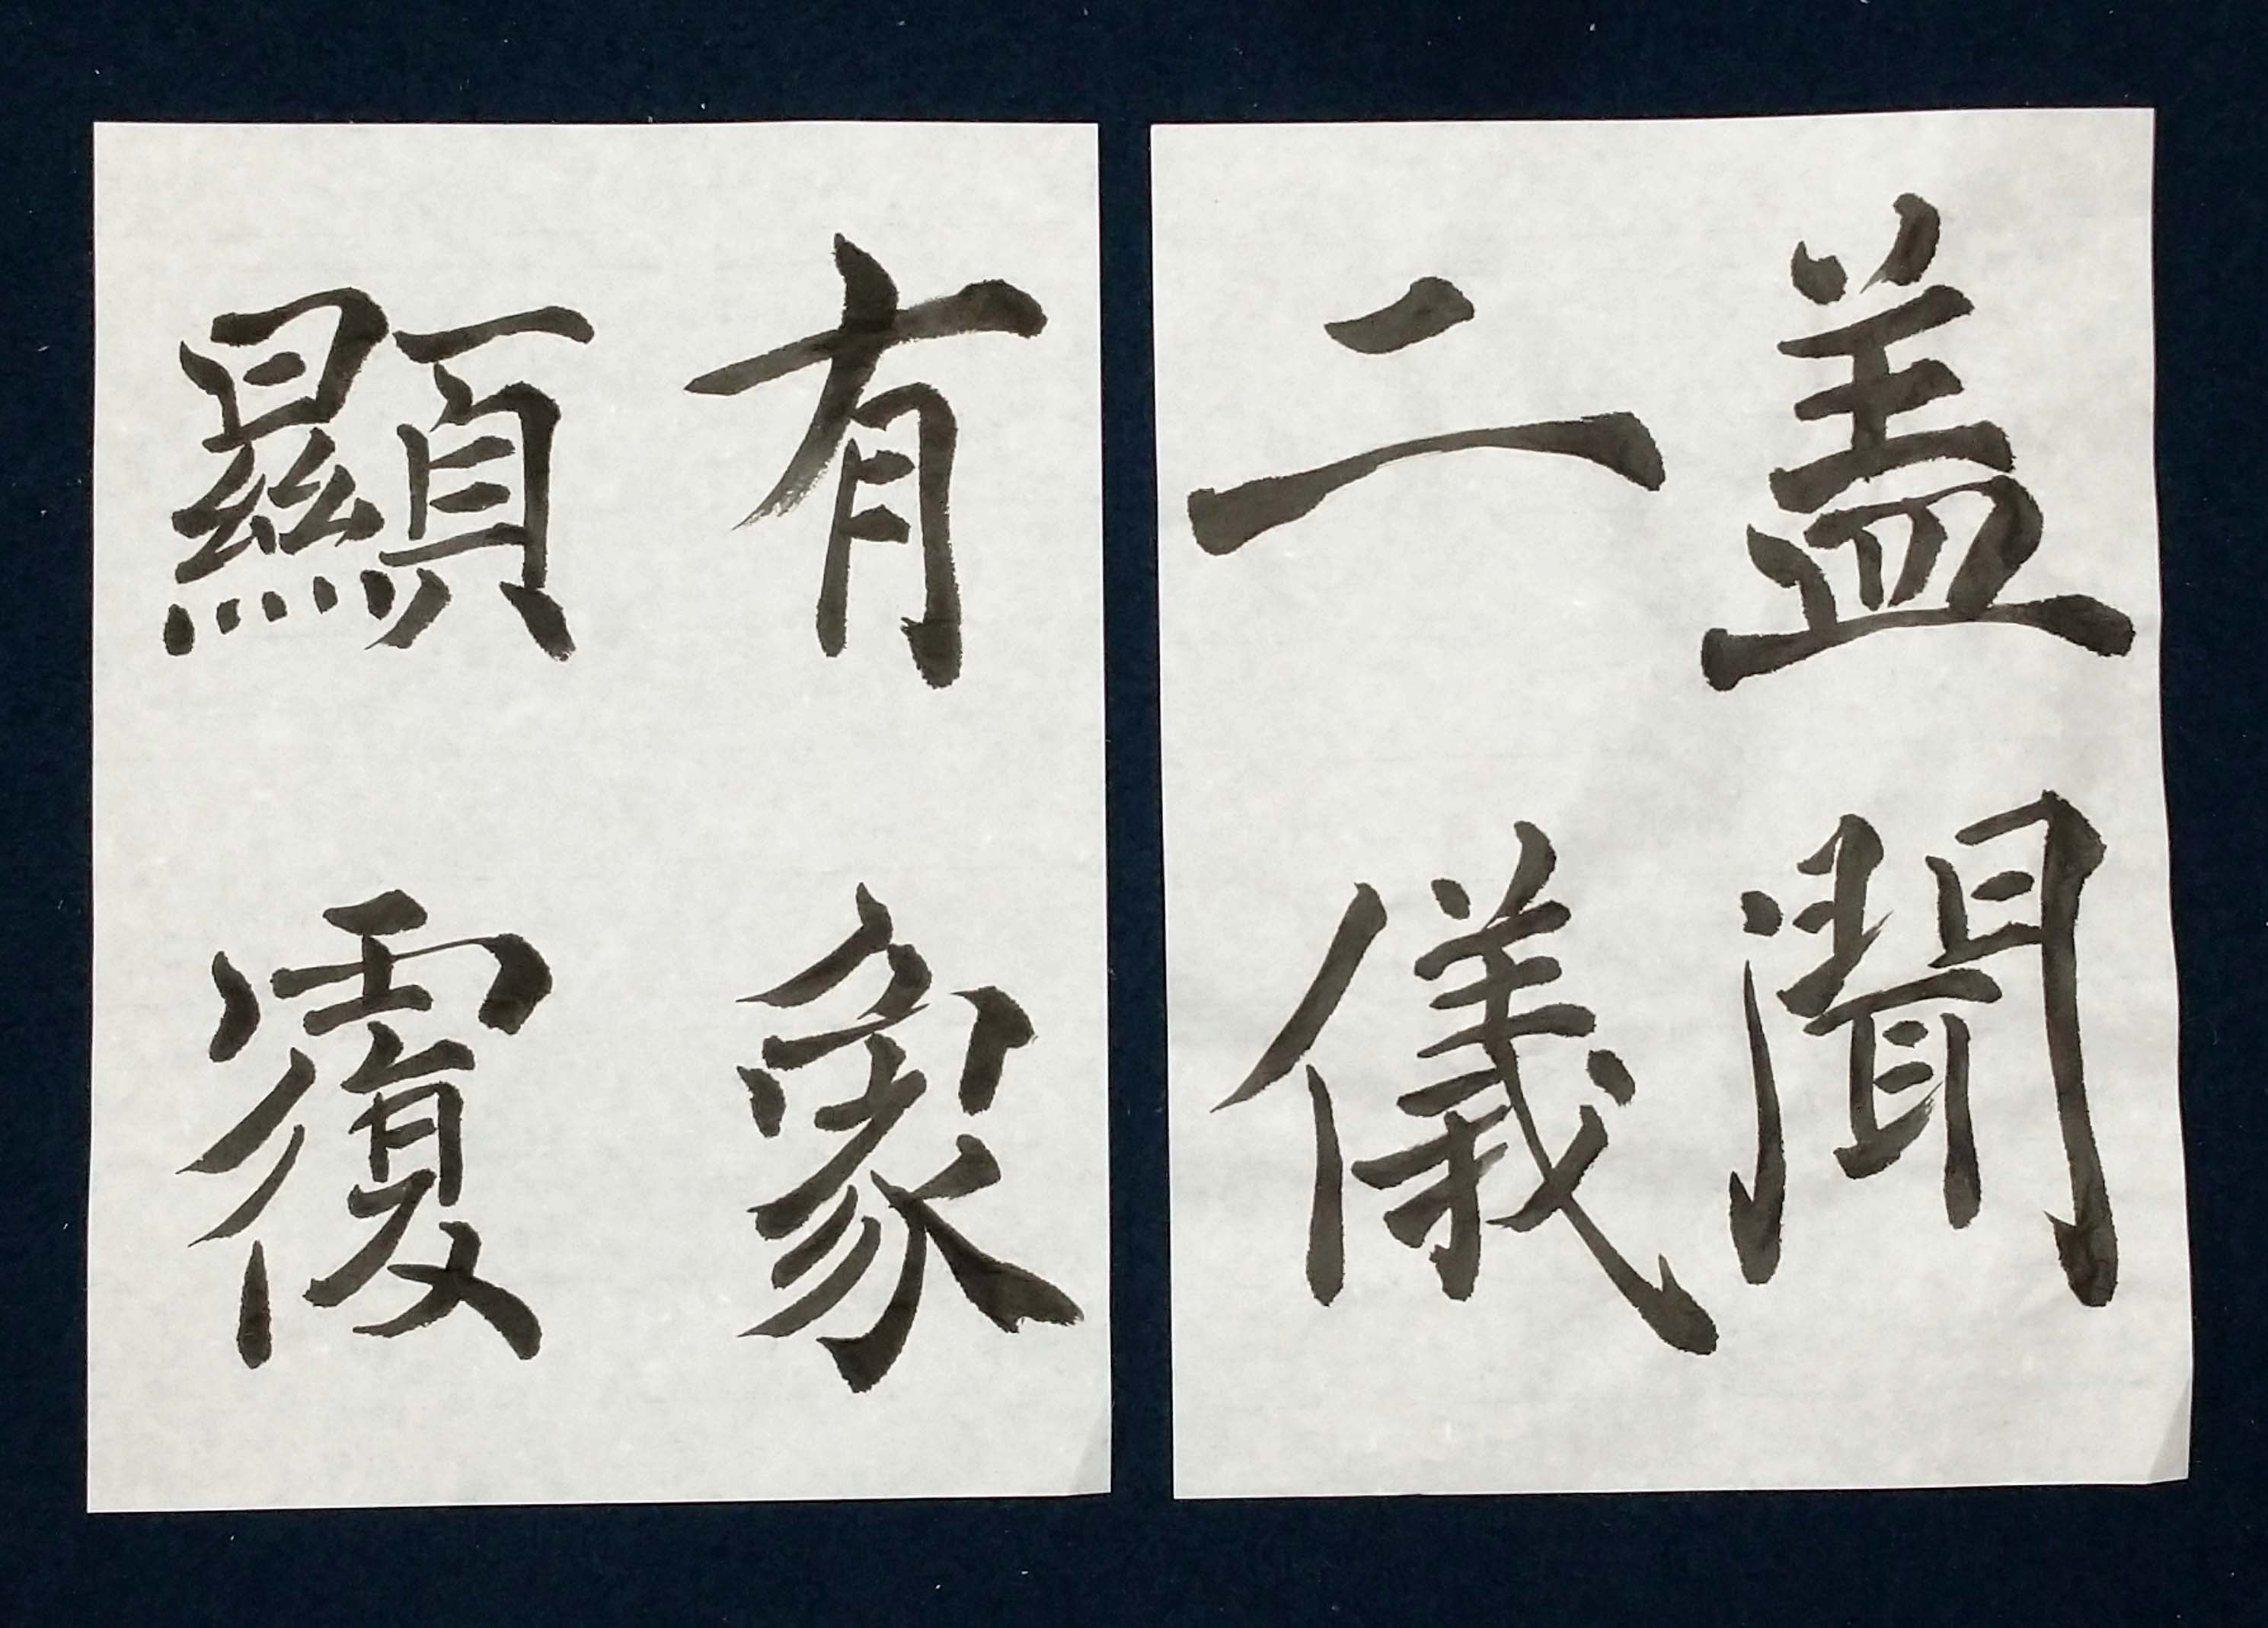 盖聞
二儀
有象
顯覆